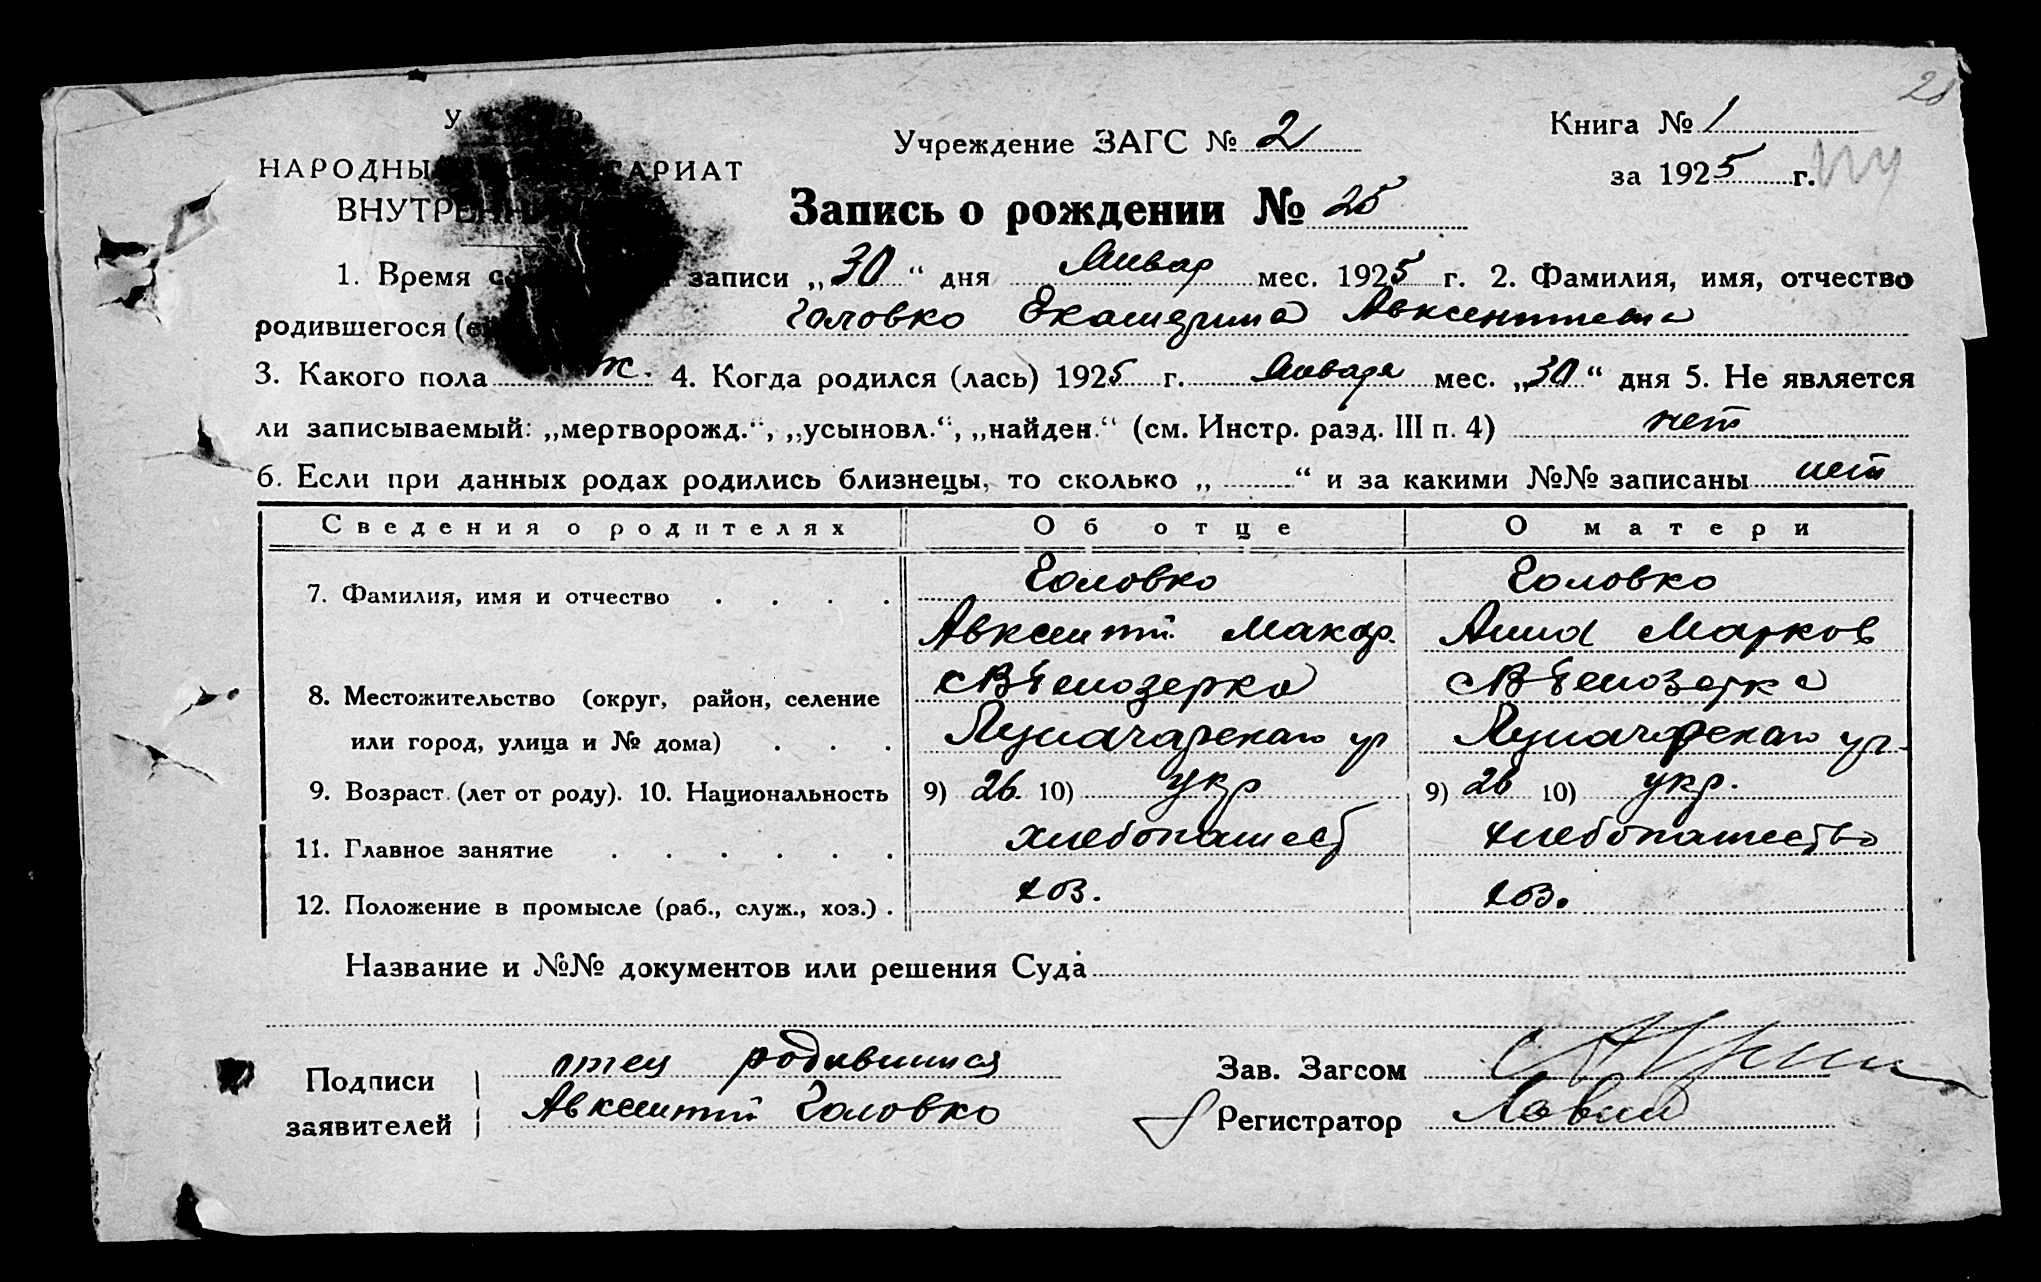 28
Учреждение ЗАГС № 2
Книга № 1
за 1925 г.
НАРОДНЫ АРИАТ
ВНУТРЕНН
Запись о рождении № 25
1. Время записи „30“ дня Январ мес. 1925 г. 2. Фамилия, имя, отчество
родившегося Головко Екатерина Авксентиевна
3. Какого пола ж. 4. Когда родился (лась) 1925 г. Января мес. „30“ дня 5. Не является
ли записываемый: „мертворожд.“, „усыновл.“, „найден.“ (см. Инстр. разд. III п. 4) нет
6. Если при данных родах родились близнецы, то сколько „ “ и за какими №№ записаны нет
Сведения о родителях Об отце О матери
7. Фамилия, имя и отчество . . . . Головко Головко
Авксентий Макар. Анна Марков
8. Местожительство (округ, район, селение Белозерка Белозерка
или город, улица и № дома) . . . Луначарская ул Луначарская ул.
9. Возраст (лет от роду). 10. Национальность 9) 26. 10) укр 9) 26 10) укр.
11. Главное занятие . . . . . . хлебопашест хлебопашество
12. Положение в промысле (раб., служ., хоз.) . хоз. хоз.
Название и №№ документов или решения Суда
Подписи отец родившися Зав. Загсом
заявителей Авксентий Головко Регистратор